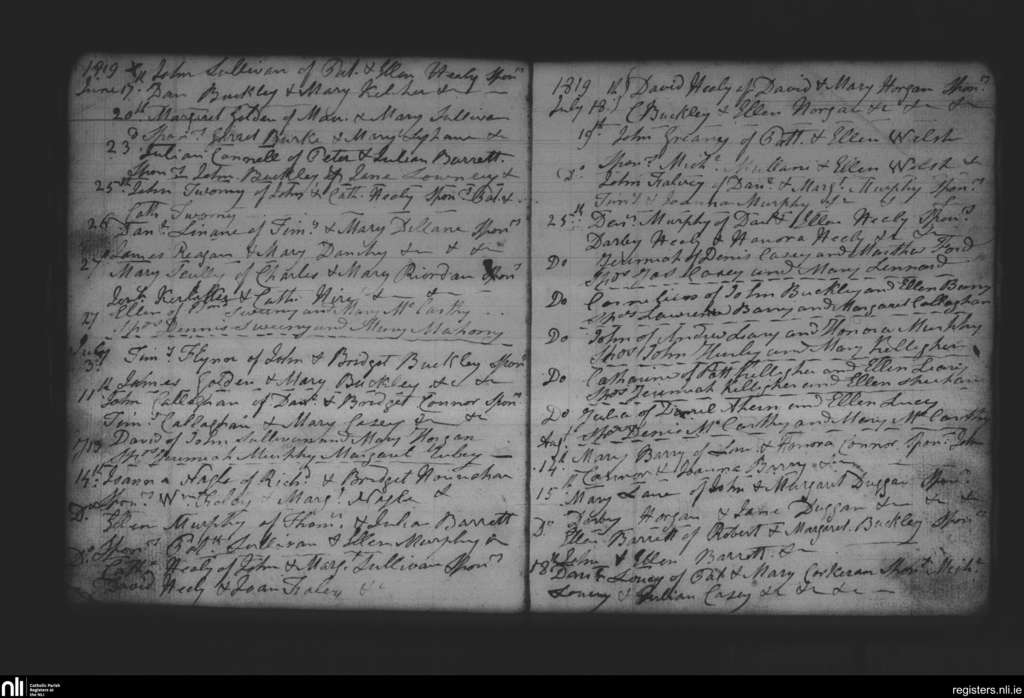 1819 John Sullivan of Pat. & Ellen Healy Spon.rs
June 17. Dan Buckley & Mary Keleher &c
20th Margaret Golden of Mau. & Mary Sullivan
Spon.rs Burke & Mary &c
23 Julian Connell of Peter & Julian Barrett.
Spon.rs John Buckley & Jane Lowney &
25th John Twomy of John & Cath. Healy Spon.rs Pat. &
Cath. Twomy
26 Dan.l Linane of Tim.y & Mary Dillane Spon.rs
James Reagan & Mary Danihy &c & &c
27 Mary Scully of Charles & Mary Riordan Spon.rs
& Cath.
27 Ellen of Sweeny and Mary McCarthy
Spo.rs Dennis Sweeny and Mary Mahony
July
3d Tim.y Flynn of John & Bridget Buckley Spon.rs
James Golden & Mary Buckley &c &c
11th John Callaghan of Dan.l & Bridget Connor Spon.rs
Tim.y Callaghan & Mary Casey & &c
13 David of John Sullivan and Mary Horgan
Spo.rs Jeremiah Murphy Margaret
14th Joanna Nagle of Rich.d & Bridget Hounihan
Spon.rs Wm. & Marg.t Nagle &
Do Ellen Murphy of Thom.s & Julia Barrett
Spon.rs Pat.k Sullivan & Ellen Murphy &c
Do Cath. Healy of John & Marg.t Sullivan Spon.rs
David Healy & Joan &c
1819 David Healy of David & Mary Horgan Spon.rs
July 18th C Buckley & Ellen Horgan &c &c &c
19th John Greany of Patt. & Ellen Welsh
Spon.rs Mich.l Mullane & Ellen Welsh &
Do John Falvey of Dan.l & Marg.t Murphy Spon.rs
Tim.y & Joanna Murphy &c
25th Den.s Murphy of Dan.l & Ellen Healy Spon.rs
Darby Healy & Honora Healy &c
Do Jeremiah of Denis Casey and Martha Ford
Spo.rs Jas Casey and Mary Lennard
Do Cornelius of John Buckley and Ellen Barry
Spo.rs Lawrence Barry and Margaret Callaghan
Do John of Andrew Leary and Honora Murphy
Spo.rs John Hurly and Mary Killigher
Do Catharine of Patt Killigher and Ellen Leary
Spo.rs Jeremiah Killigher and Ellen Sheehan
Do Julia of Daniel Ahern and Ellen Lucey
Spo.rs Denis McCarthy and Mary McCarthy
Aug.t
14th Mary Barry of & Honora Connor Spon.rs John
Connor & Joanna Barry &c
15th Mary Lane of John & Margaret Duggan Spon.rs
Darby Horgan & Jane Duggan &c &c &c
Do Ellen Barrett of Robert & Margaret Buckley Spon.rs
John & Ellen Barrett &c
18th Dan.l Loney of Pat & Mary Corkeran Spon.rs Mich.l
Loney & Julian Casey &c &c &c
nli Catholic Parish Registers at the NLI
registers.nli.ie